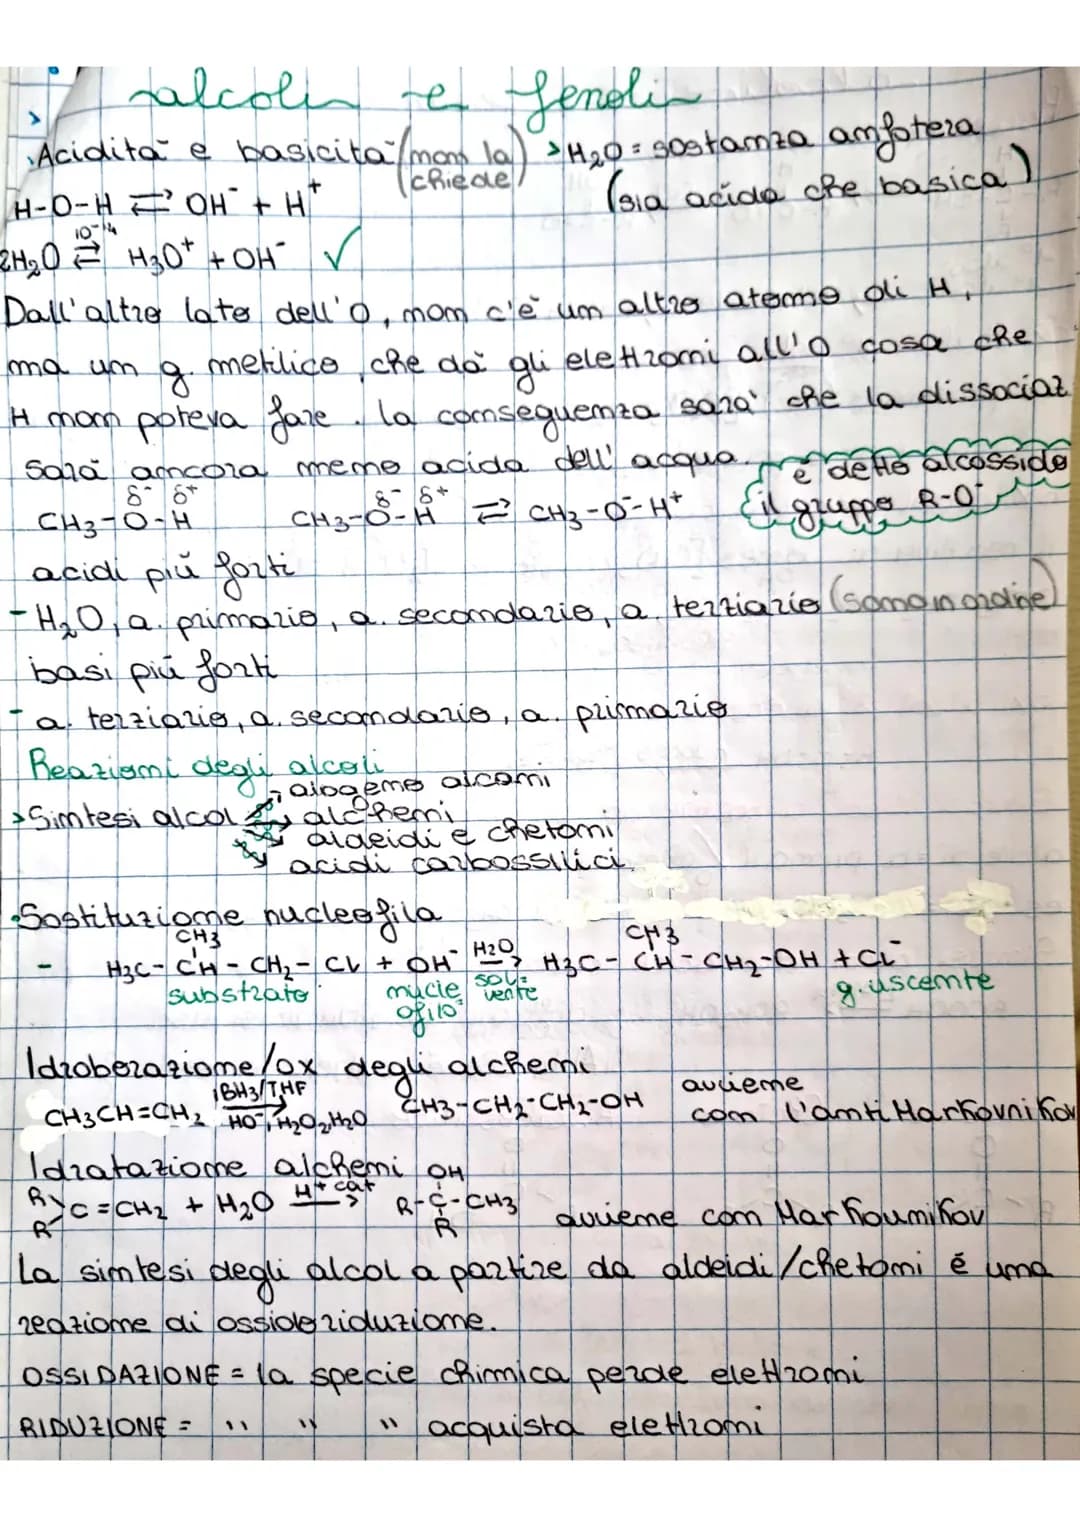 alcoli e fenoli
Acidità e basicità (non la chiede) > H2O = sostanza anfotera (sia acida che basica)
H-O-H ⇄ OH⁻ + H⁺
2H2O ⇄ 10⁻¹⁴ H3O⁺ + OH⁻ ✓
Dall'altro lato dell'O, non c'è un altro atomo di H,
ma un g. metilico che dà gli elettroni all'O cosa che
H non poteva fare. la conseguenza sarà che la dissociaz
sarà ancora meno acida dell'acqua.
è detto alcossido
il gruppo R-O⁻
δ⁻ δ⁺
CH3-O-H
δ⁻ δ⁺
CH3-O-H ⇄ CH3-O⁻-H⁺
acidi più forti
- H2O, a. primario, a. secondario, a. terziario (sono in ordine)
basi più forti
- a. terziario, a. secondario, a. primario
Reazioni degli alcoli
> Sintesi alcol → alogeno alcani
→ alcheni
→ aldeidi e chetoni
→ acidi carbossilici
• Sostituzione nucleofila
CH3 CH3
- H3C-CH-CH2-Cl + OH⁻ H2O → H3C-CH-CH2-OH + Cl⁻
substrato nucleofilo solvente g. uscente
Idroborazione/ox degli alcheni
CH3CH=CH2 1BH3/THF → HO⁻, H2O2, H2O CH3-CH2-CH2-OH avviene
con l'anti Markovnikov
Idratazione alcheni
R R C=CH2 + H2O H⁺ cat → R-C-CH3 OH R avviene con Markovnikov
La sintesi degli alcol a partire da aldeidi/chetoni è una
reazione di ossidoriduzione.
OSSIDAZIONE = la specie chimica perde elettroni
RIDUZIONE = " " " acquista elettroni